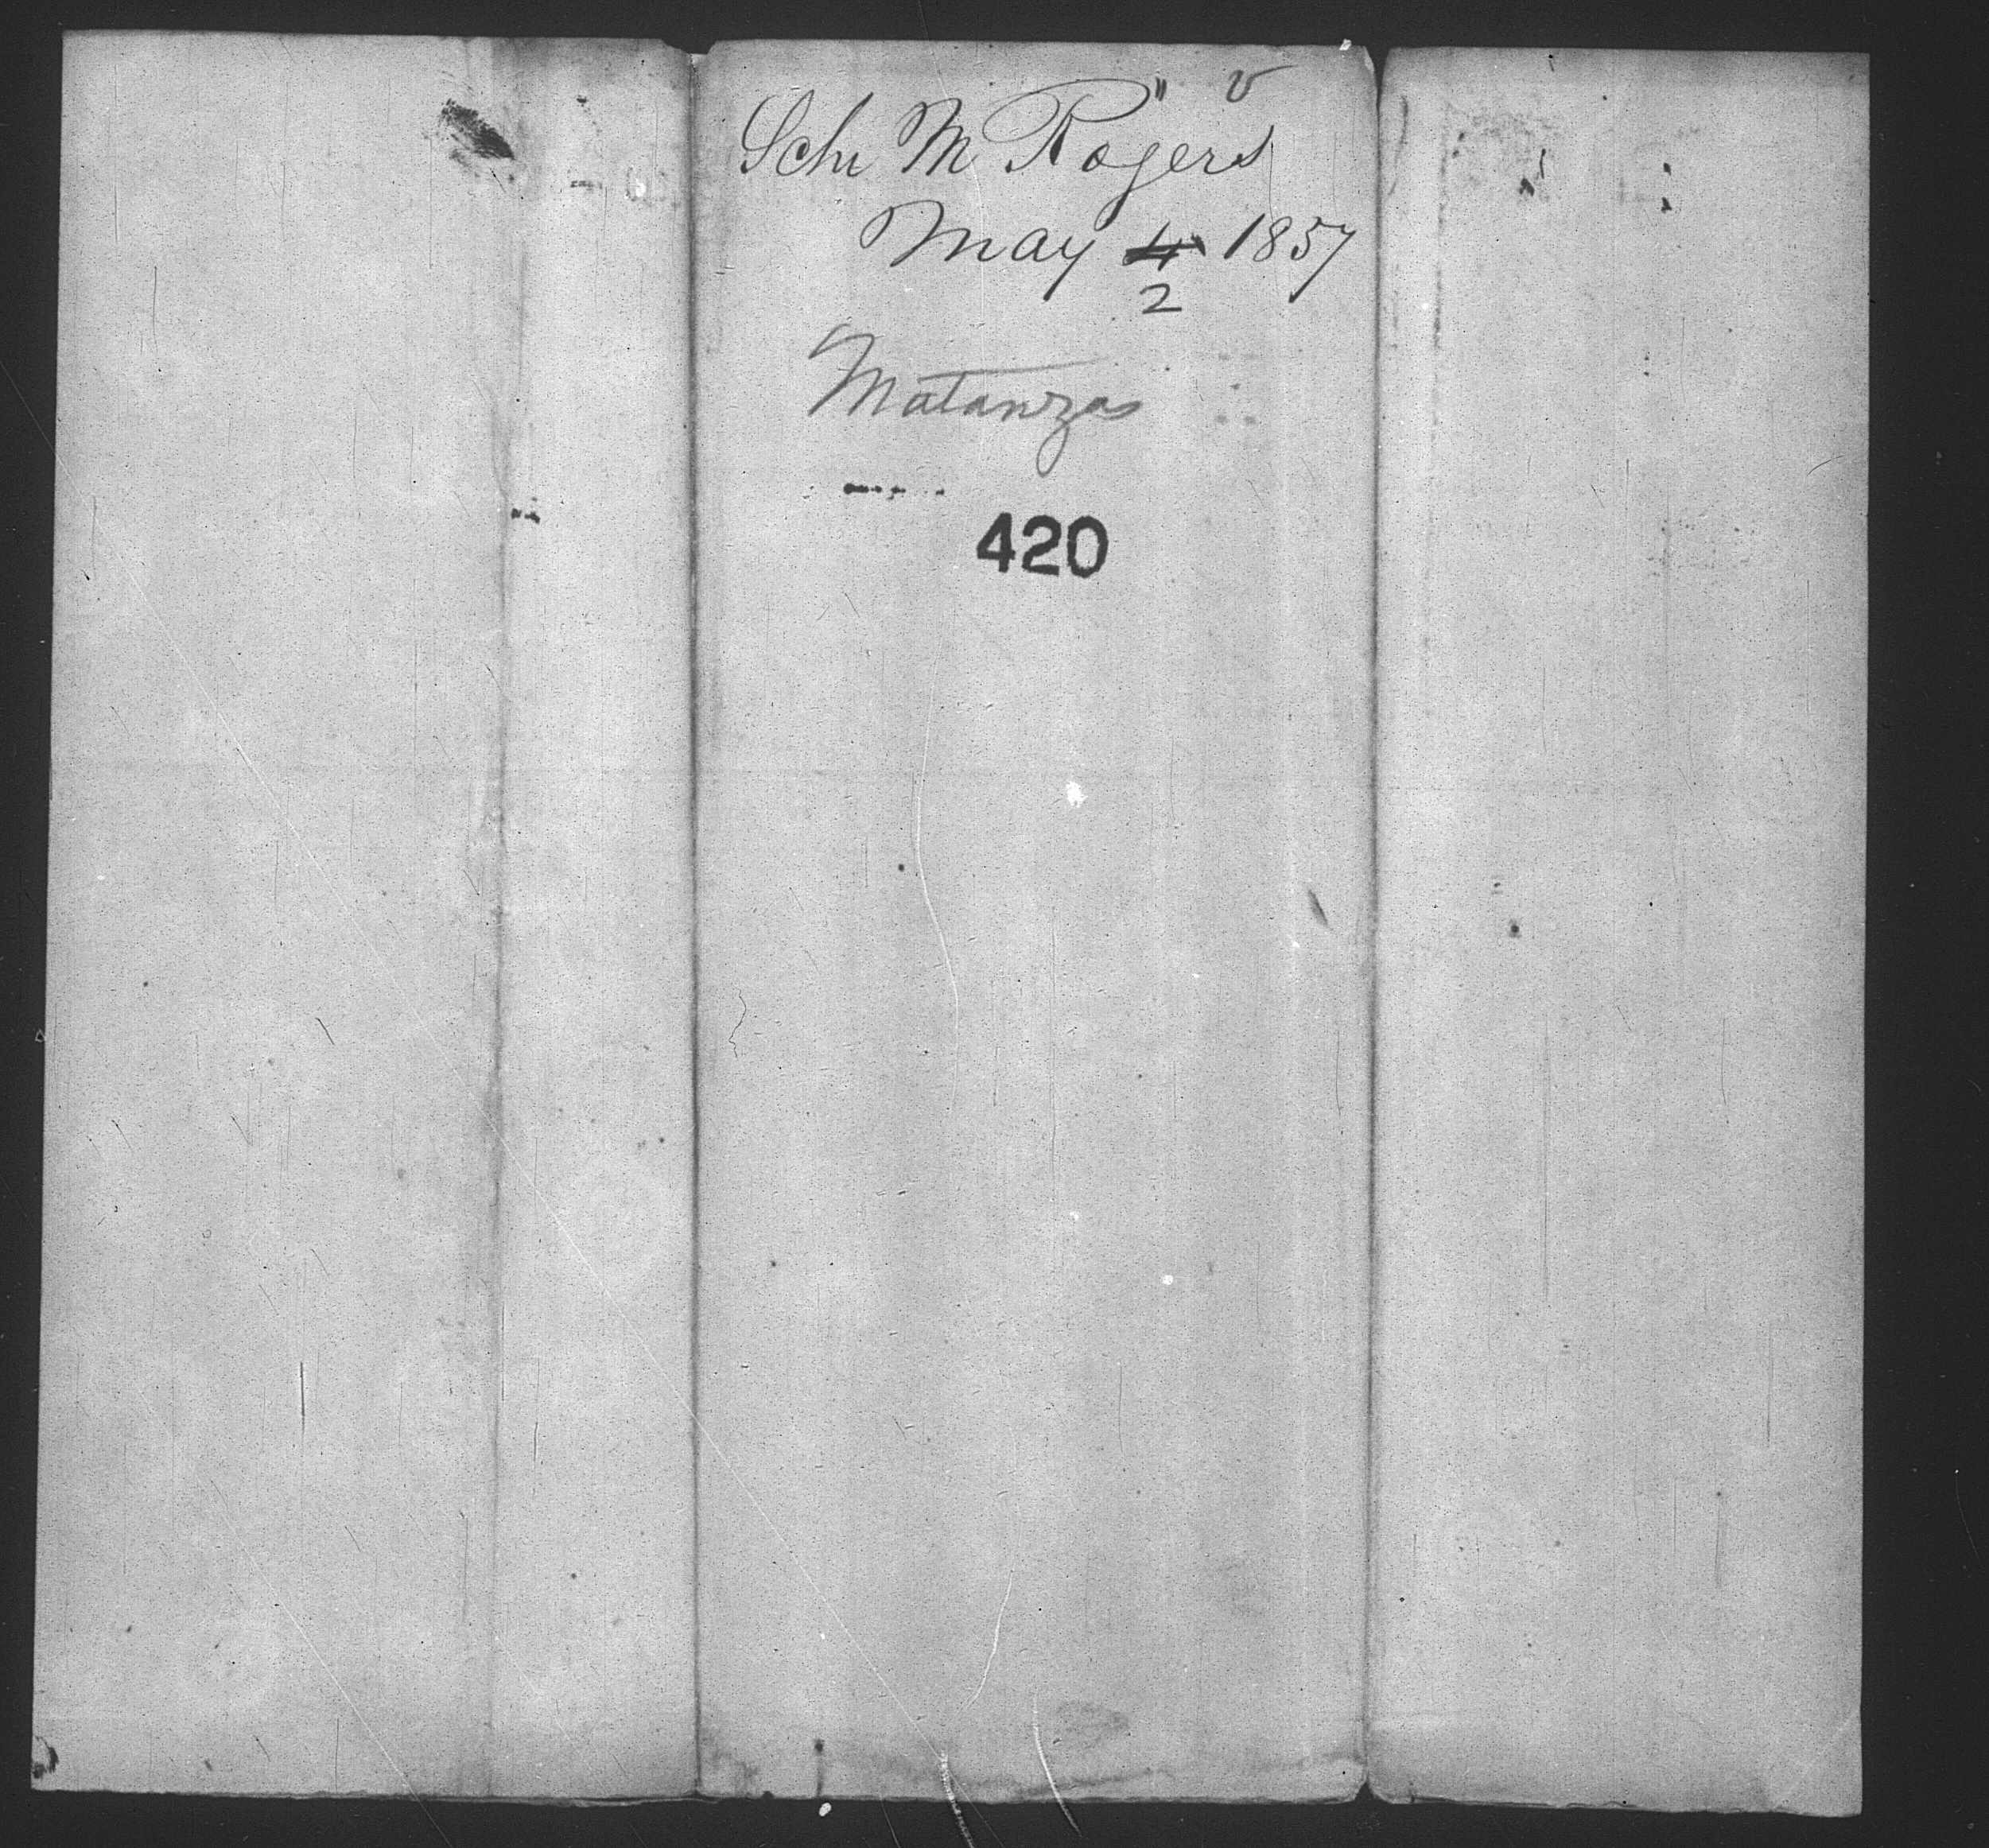 " v
Schr M Rogers
May 4 1857
2
Matanzas
420